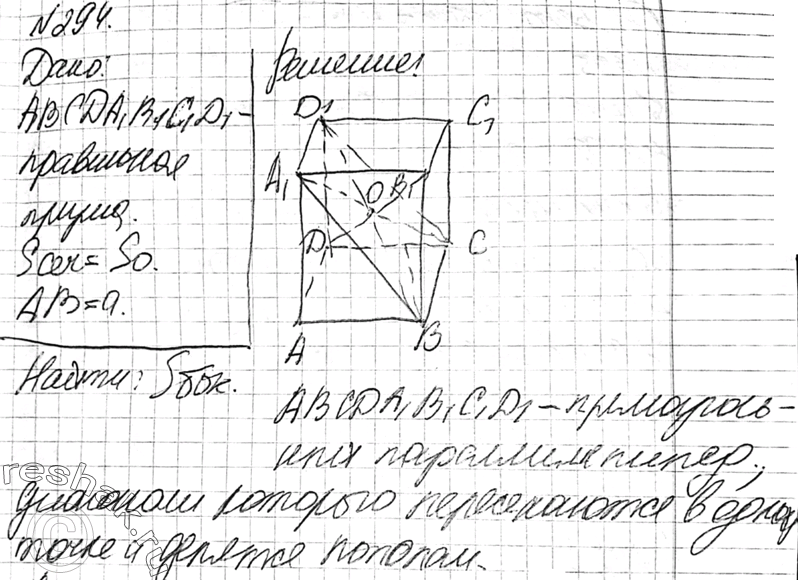 №294.
Дано:
ABCDA₁B₁C₁D₁ –
правильная
призма.
Sсеч = S₀.
AB = a.
Найти: Sбок.
Решение:
D₁ C₁
A₁ B₁
O
D C
A B
ABCDA₁B₁C₁D₁ – прямоуголь-
ный параллелепипед,
диагонали которого пересекаются в одной
точке и делятся пополам.
reshak.ru